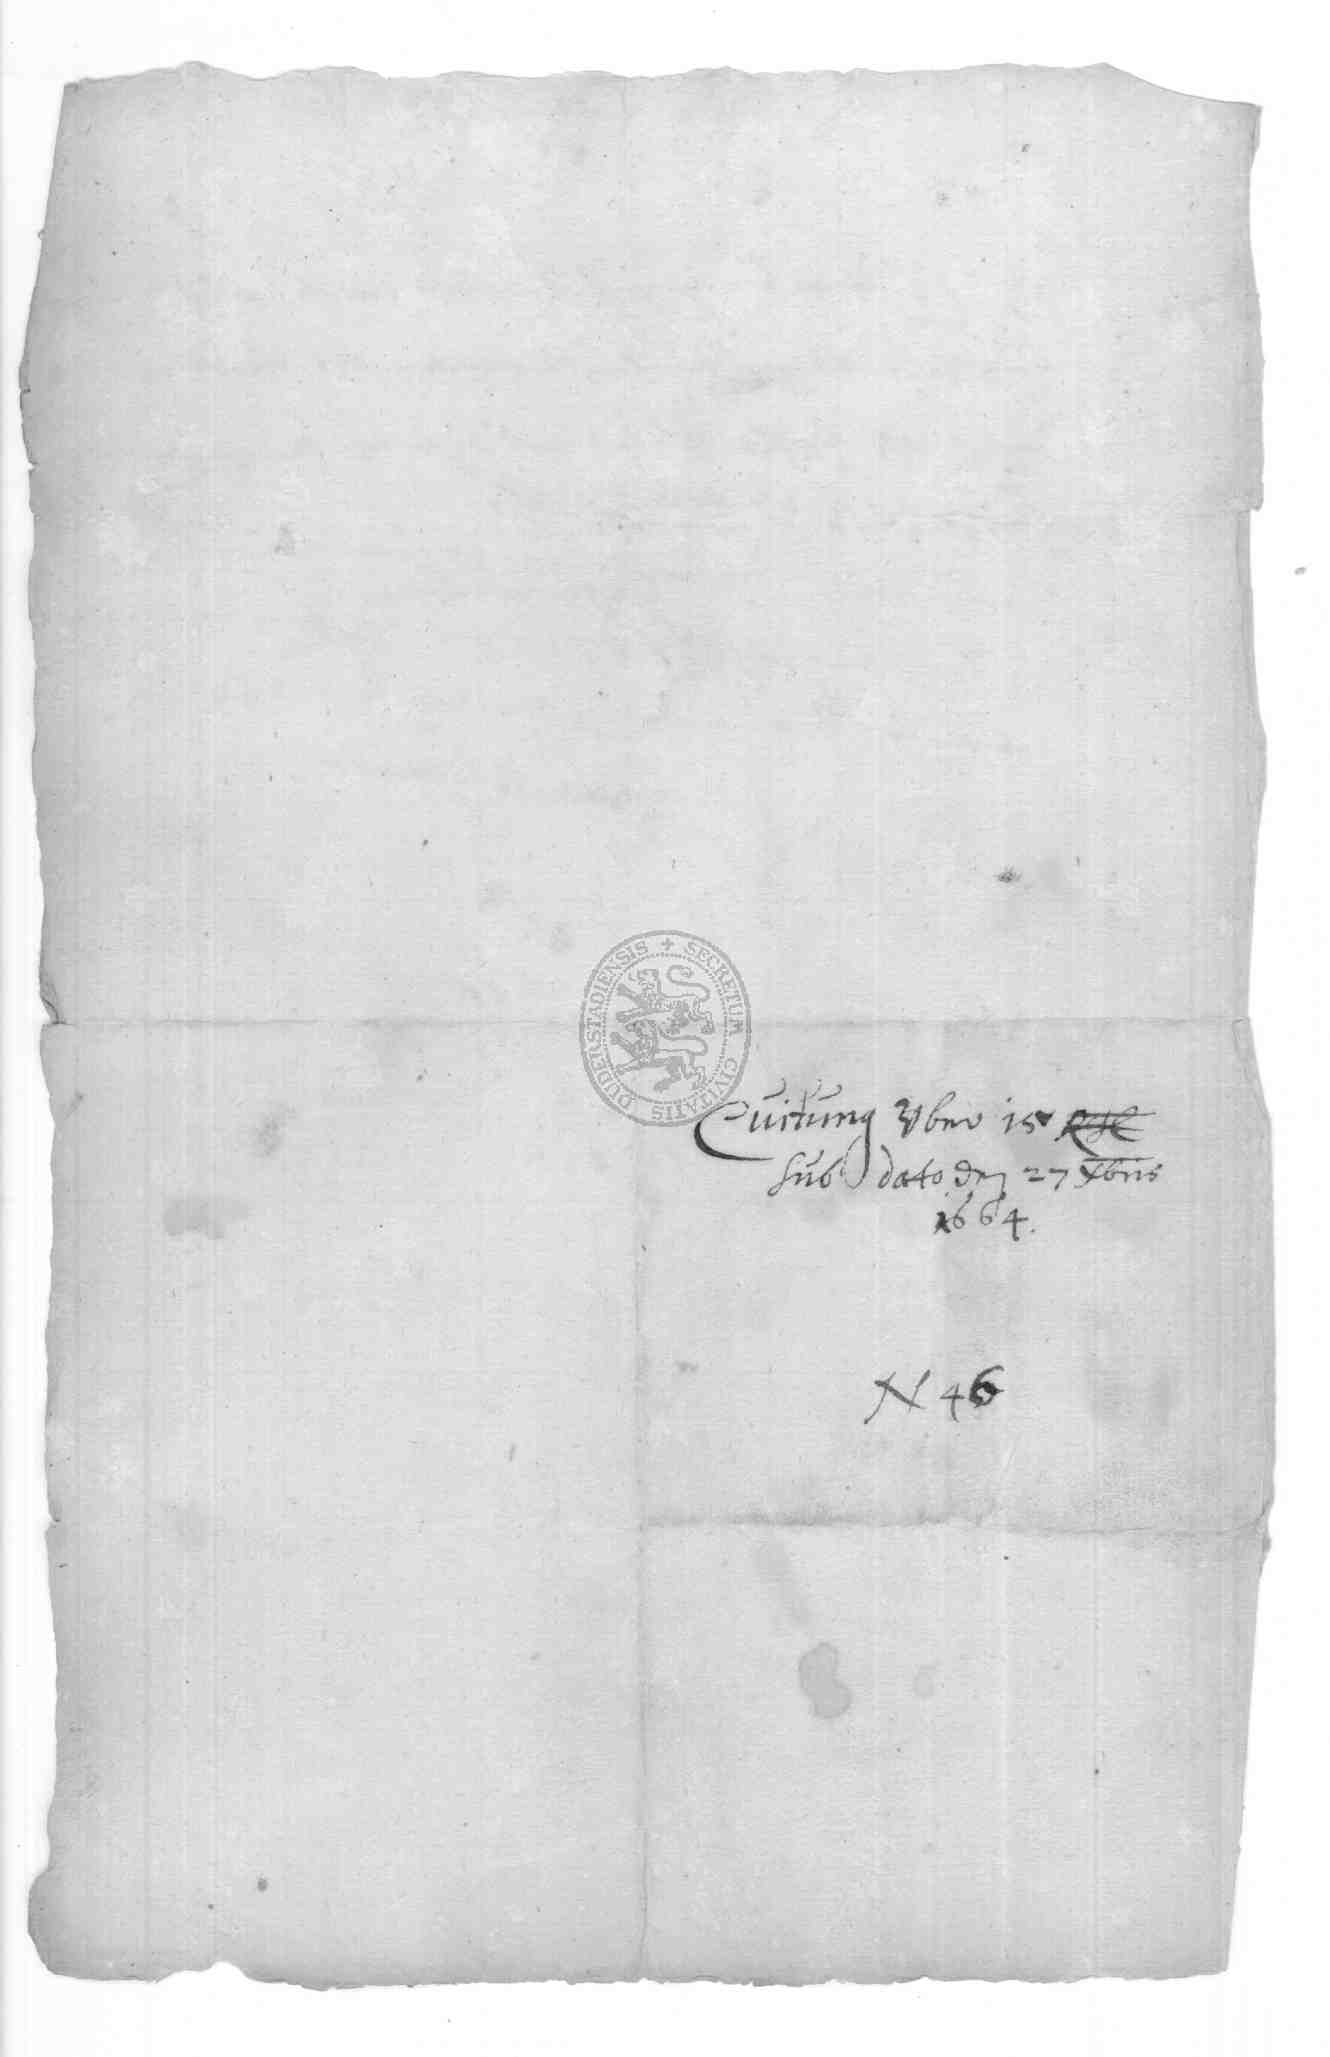 SECRETUM CIVITATIS DUDERSTADIENSIS
Quitung Vber 15 Rthl
sub dato den 27 Xbris
1664.
N 46